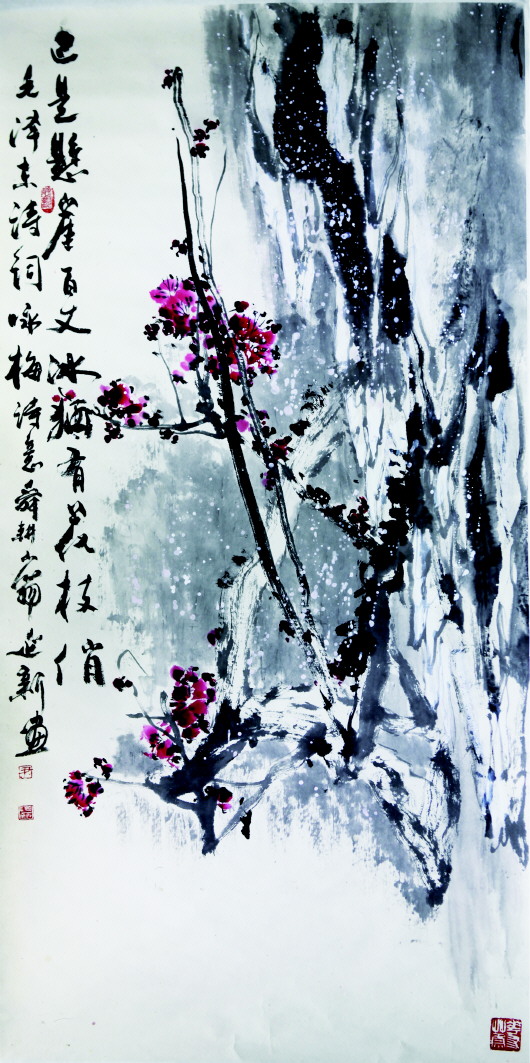 已是悬崖百丈冰犹有花枝俏
毛泽东诗词咏梅诗意舜耕山翁延新画